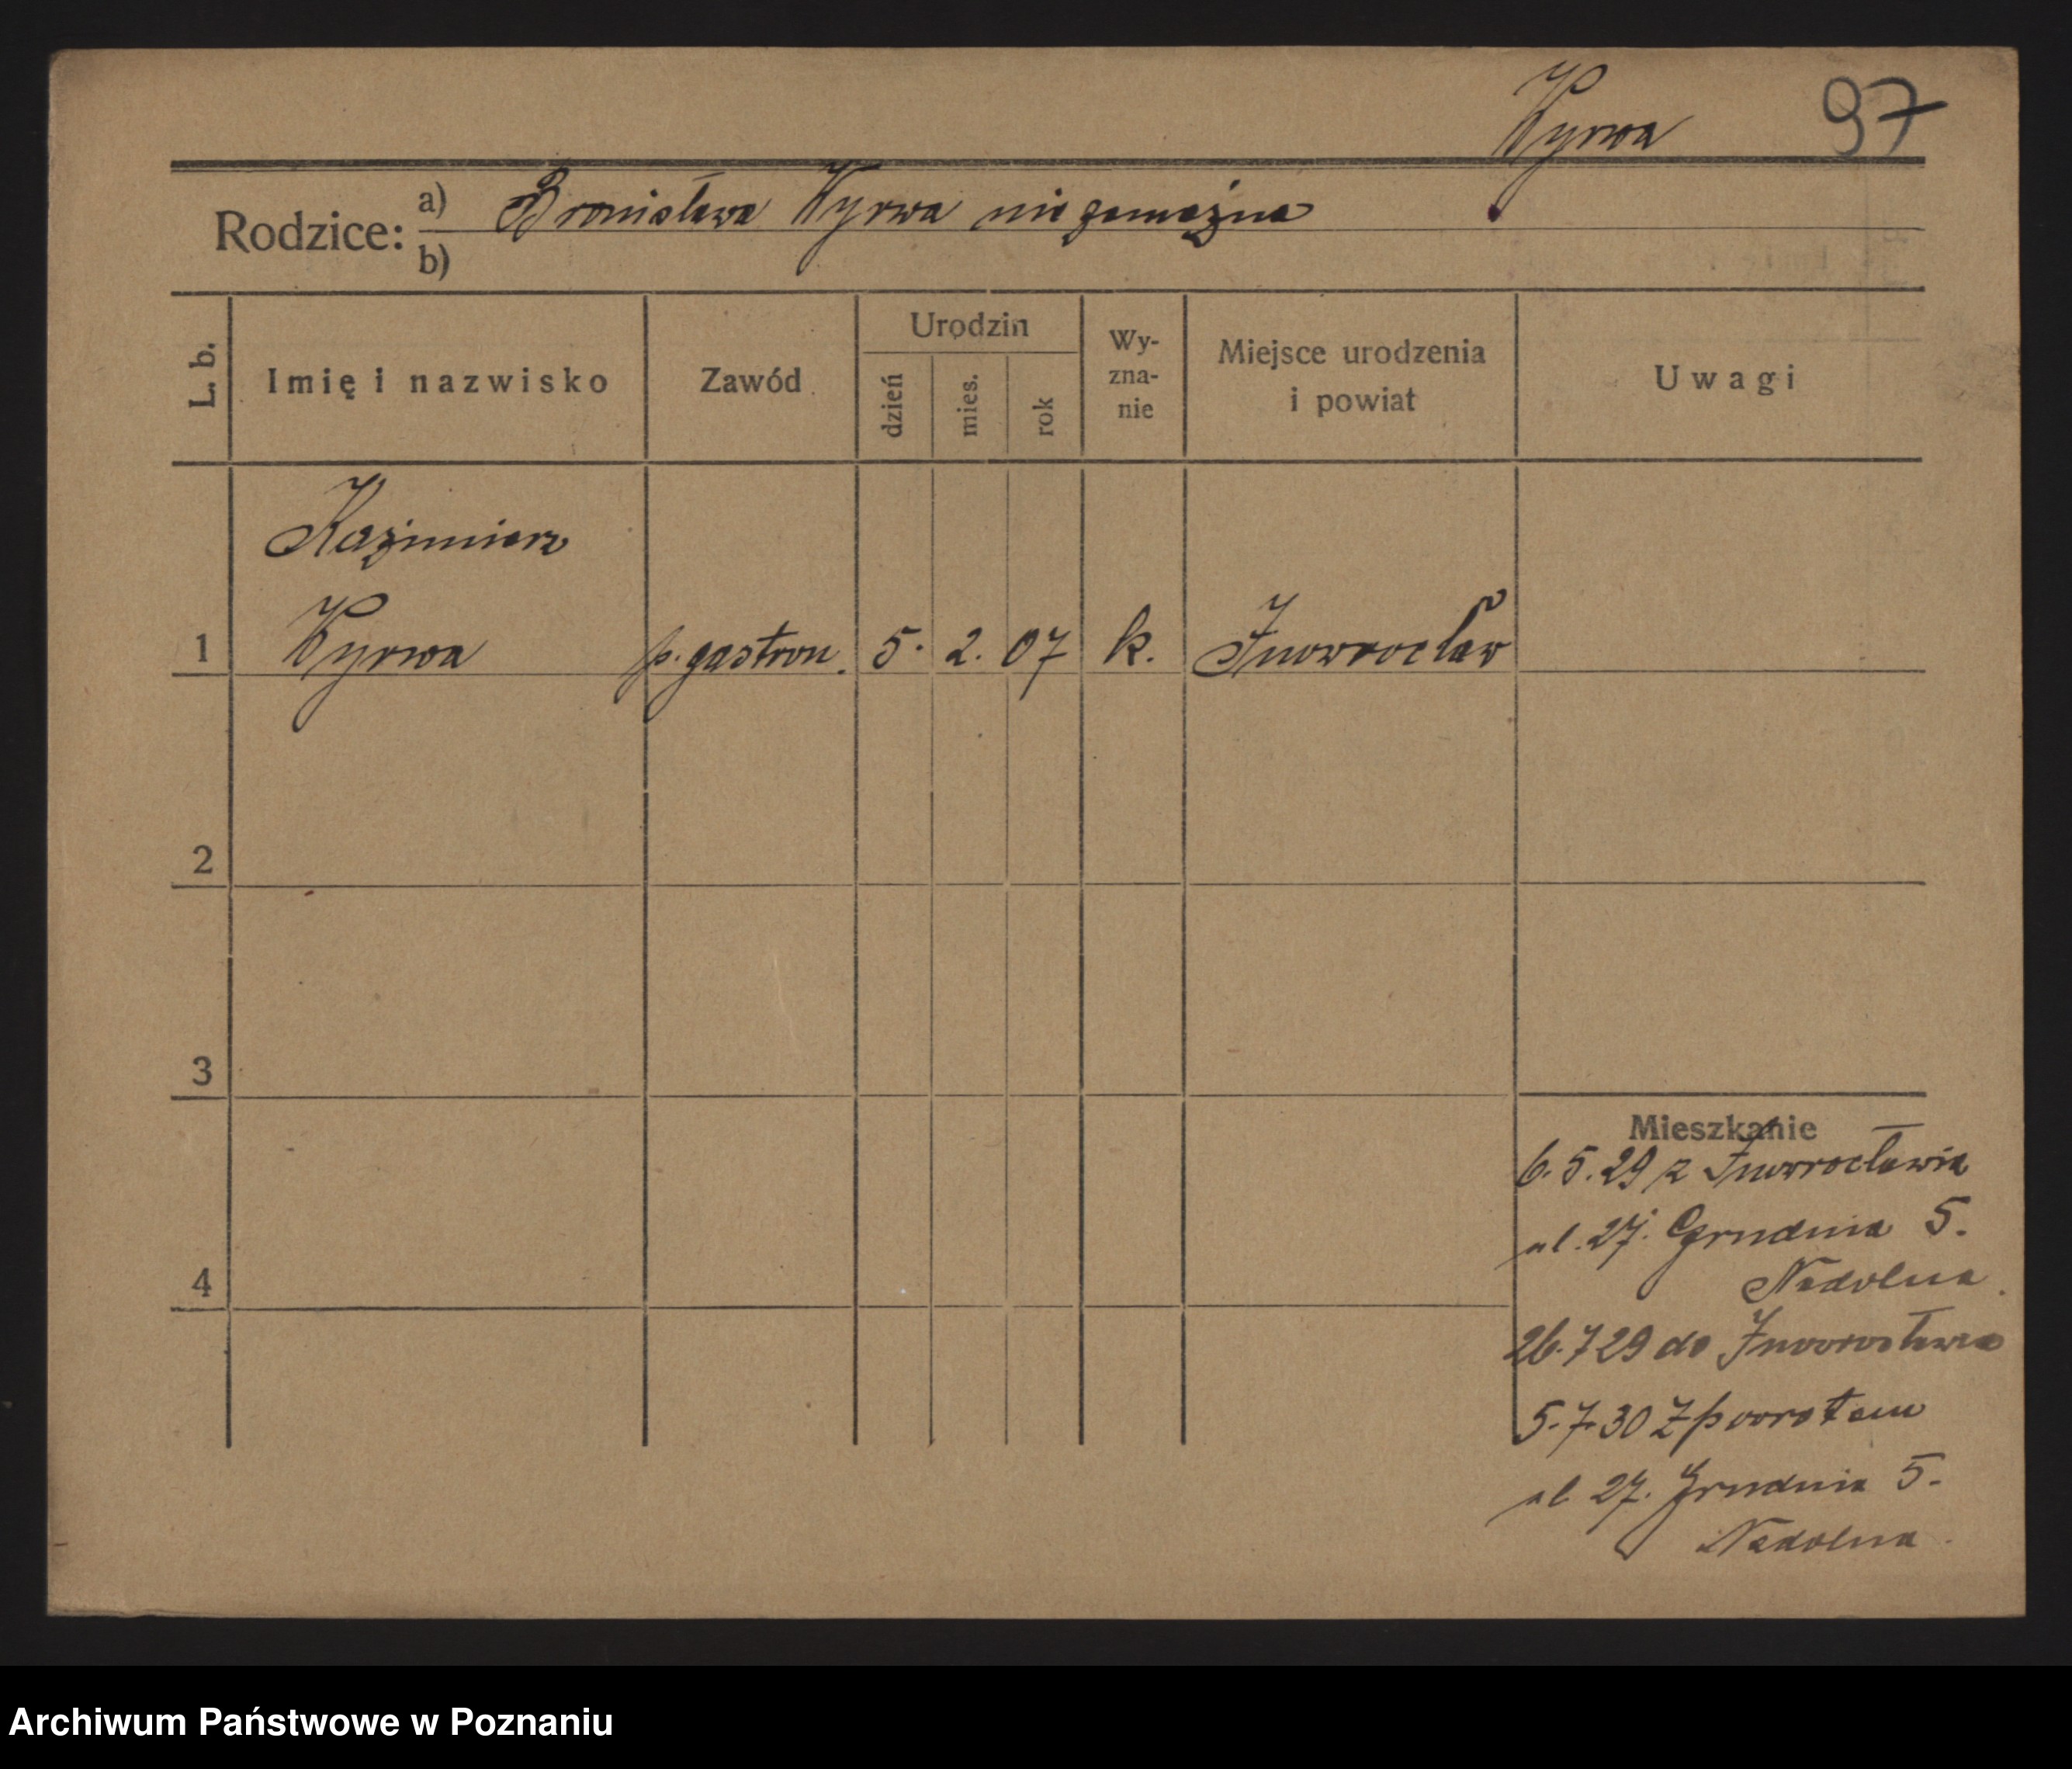 Wyrwa 97
Rodzice: a) Bronisława Wyrwa niezamężna
b)
L. b. Imię i nazwisko Zawód Urodzin dzień mies. rok Wy-zna-nie Miejsce urodzenia i powiat Uwagi
Kazimierz
1 Wyrwa p. gastron. 5. 2. 07 k. Inowrocław
2
3
Mieszkanie
6.5.29 z Inowrocławia
ul. 27. Grudnia 5.
4
Nadolna.
26.7 29 do Inowrocławia
5.7.30 Z powrotem
ul 27. Grudnia 5.
Nadolna.
Archiwum Państwowe w Poznaniu